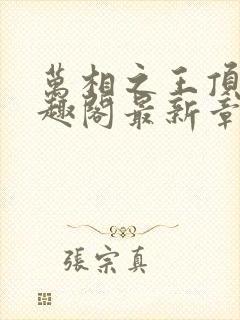 萬相之王頂
趣閣最新章
張宗真